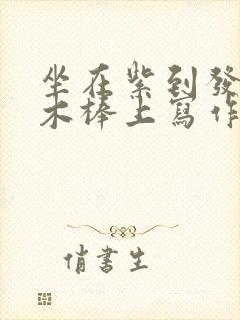 坐在紫到發
木棒上寫作
俏書生